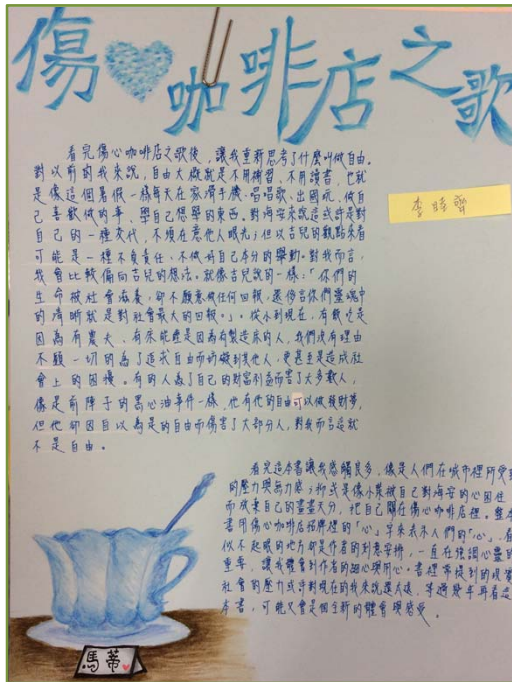 傷心咖啡店之歌
看完傷心咖啡店之歌後，讓我重新思考了什麼叫做自由。
對以前的我來說，自由大概就是不用練習、不用讀書，也就
是像這個暑假一樣每天在家滑手機、唱唱歌、出國玩，做自
己喜歡做的事、學自己想學的東西。對海安來說這或許是對
自己的一種交代，不須在意他人眼光；但以吉兒的觀點來看
可能是一種不負責任、不做好自己本分的舉動。對我而言，
我會比較偏向吉兒的想法。就像吉兒說的一樣：「你們的
生命被社會滋養，卻不願意做任何回報，還傳言你們靈魂中
的清晰就是對社會最大的回報。」。從小到現在，有飯吃是
因為有農夫、有床能睡是因為有製造床的人，我們沒有理由
不顧一切的為了追求自由而妨礙到其他人，更甚至是造成社
會上的困擾。有的人為了自己的財富利益而害了大多數人，
像是前陣子的黑心油事件一樣，他有他的自由可以做發財夢，
但他卻因自以為是的自由而傷害了大部分人，對我而言這就
不是自由。
李晴齊
看完這本書讓我感觸良多，像是人們在城市裡所受到
的壓力與無力感；抑或是像小葉被自己對海安的心困住
而放棄自己的畫畫天分，把自己關在傷心咖啡店裡。整本
書用傷心咖啡店招牌裡的「心」字來表示人們的「心」，看
似不起眼的地方卻是作者的刻意安排，一直在強調心靈的
重要，讓我體會到作者的細心與用心。書裡常提到的現實
社會的壓力或許對現在的我來說還太遠，等過幾年再看這
本書，可能又會是個全新的體會與感受。
馬蒂